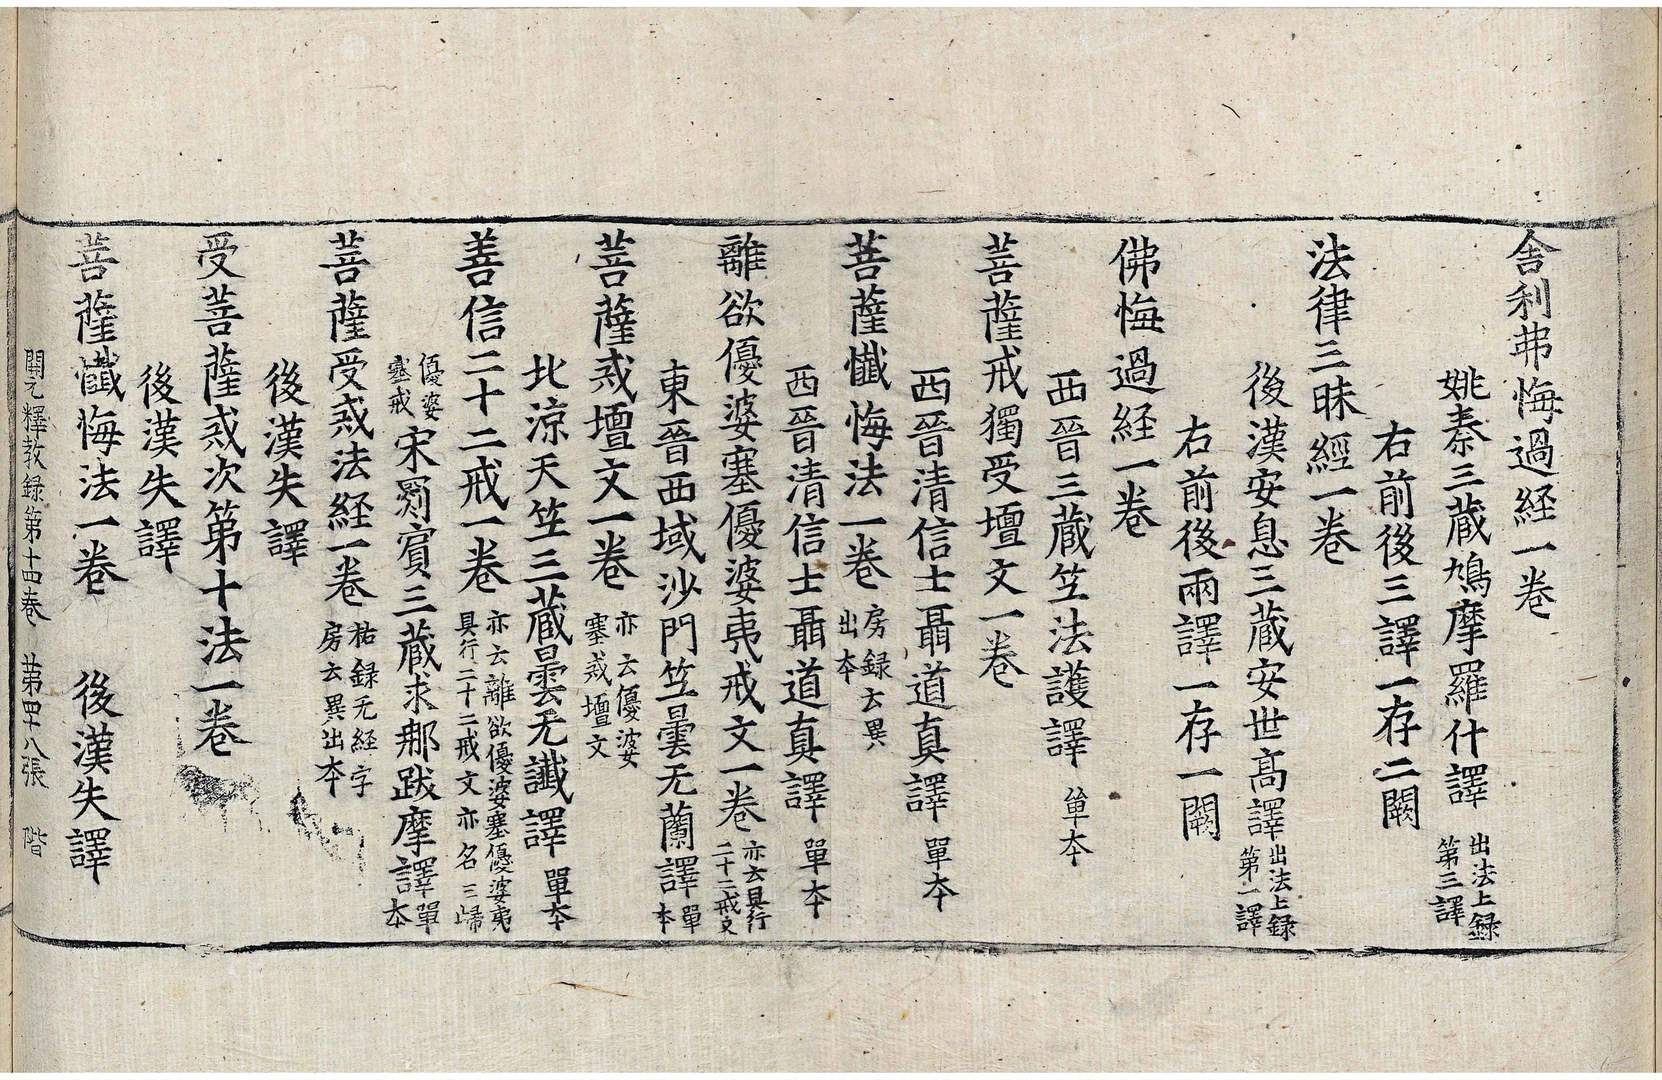 舎利弗悔過経一巻
姚秦三蔵鳩摩羅什譯 出法上録第三譯
右前後三譯一存二闕
法律三昧經一巻
後漢安息三蔵安世高譯 出法上録第一譯
右前後兩譯一存一闕
佛悔過経一巻
西晉三蔵竺法護譯 單本
菩薩戒獨受壇文一巻
西晉清信士聶道真譯 單本
菩薩懺悔法一巻 房録云異出本
西晉清信士聶道真譯 單本
離欲優婆塞優婆夷戒文一巻 亦云具行二十二戒文
東晉西域沙門竺曇无蘭譯 單本
菩薩戒壇文一巻 亦云優婆塞戒壇文
北涼天竺三蔵曇无讖譯 單本
善信二十二戒一巻 亦云離欲優婆塞優婆夷具行二十二戒文亦名三歸
優婆塞戒 宋罽賓三蔵求那跋摩譯 單本
菩薩受戒法経一巻 祐録无経字房云異出本
後漢失譯
受菩薩戒次第十法一巻
後漢失譯
菩薩懺悔法一巻 後漢失譯
開元釋教録第十四巻 第四十八張 階